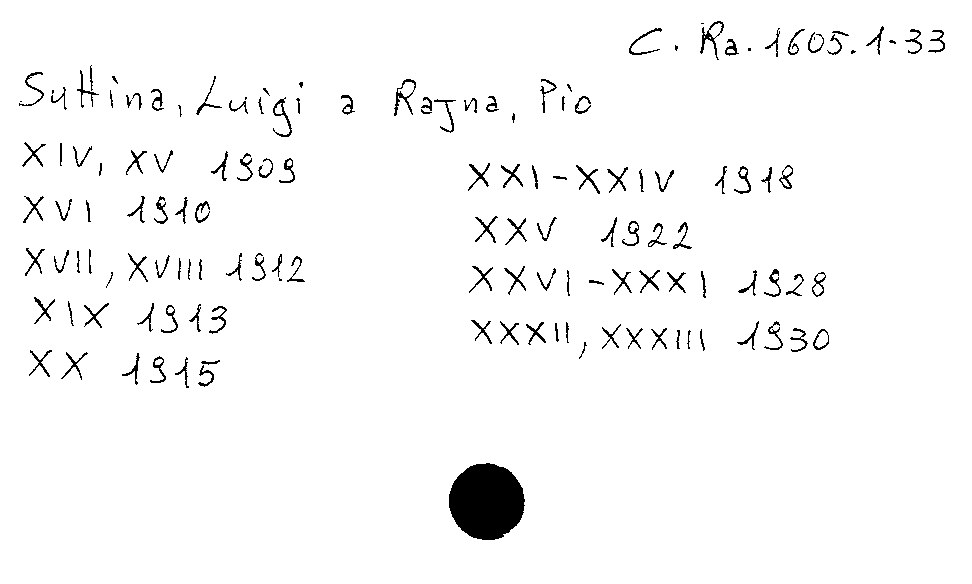 C. Ra. 1605. 1-33
Suttina, Luigi a Rajna, Pio
XIV, XV 1909
XVI 1910
XVII, XVIII 1912
XIX 1913
XX 1915
XXI-XXIV 1918
XXV 1922
XXVI-XXXI 1928
XXXII, XXXIII 1930